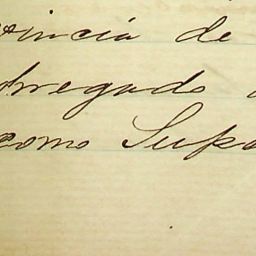 vincia de
bregado
como Supo